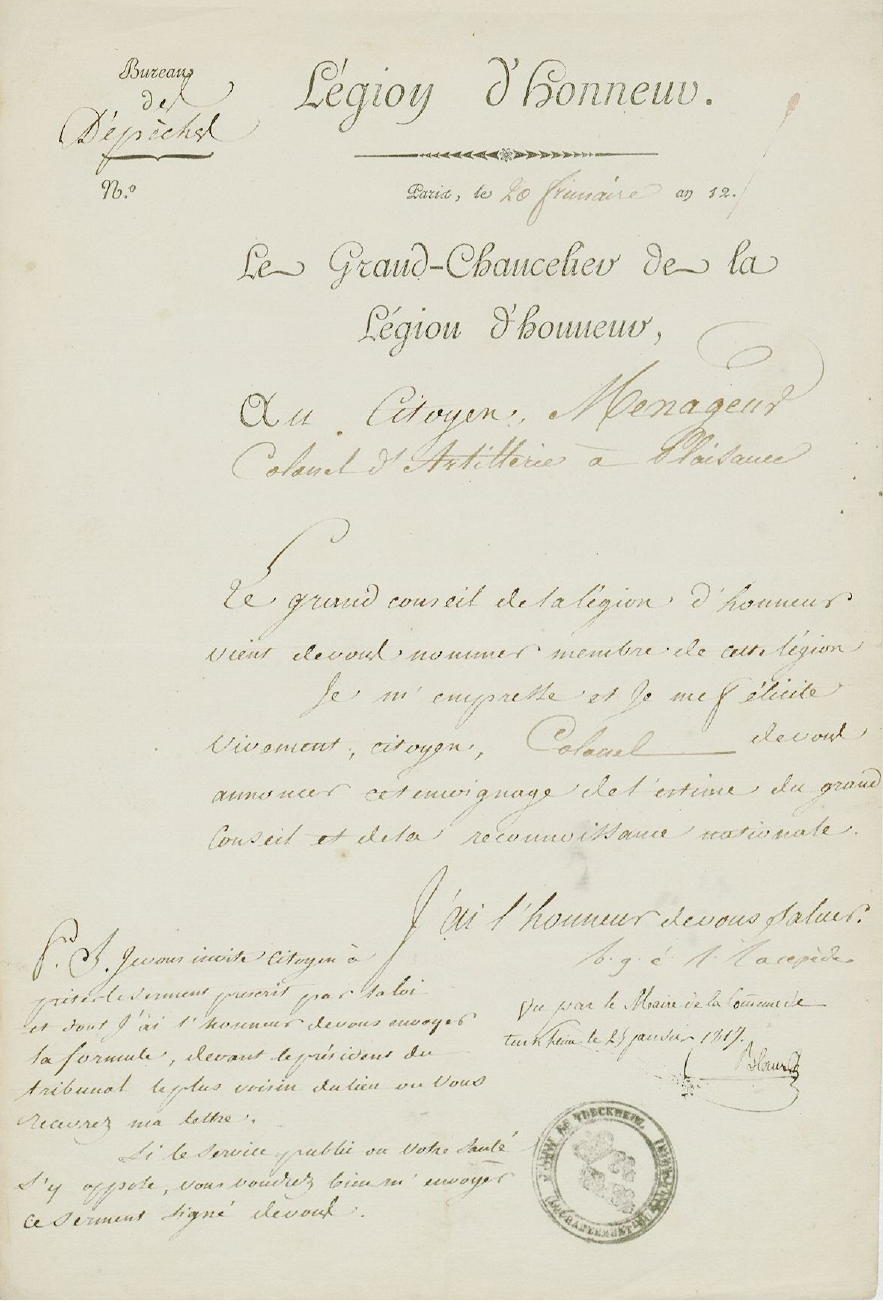 Bureau
des
Dépêches
Légion d'Honneur.
N.º
Paris, le 20 frimaire an 12.
Le Grand-Chancelier de la
Légion d'honneur,
Au Citoyen, Menageur
Colonel d'Artillerie à Plaisance
Le grand conseil de la légion d'honneur
vient de vous nommer membre de cette légion
Je m'empresse et Je me félicite
vivement, citoyen, Colonel de vous
annoncer ce temoignage de l'estime du grand
Conseil et de la reconnoissance nationale.
J'ai l'honneur de vous saluer.
b. g. é. l. Lacepède
P. S. Je vous invite Citoyen à
prêter le serment prescrit par la loi
et dont J'ai l'honneur de vous envoyer
la formule, devant le président du
tribunal le plus voisin du lieu ou vous
recevrez ma lettre.
Si le service public ou votre santé
s'y oppose, vous voudrez bien m'envoyer
ce serment signé de vous.
Vu par le Maire de la Commune de
turkheim le 25 janvier 1817.
MAIRIE DE TURCKHEIM
DÉPARTEMENT DU HAUT RHIN